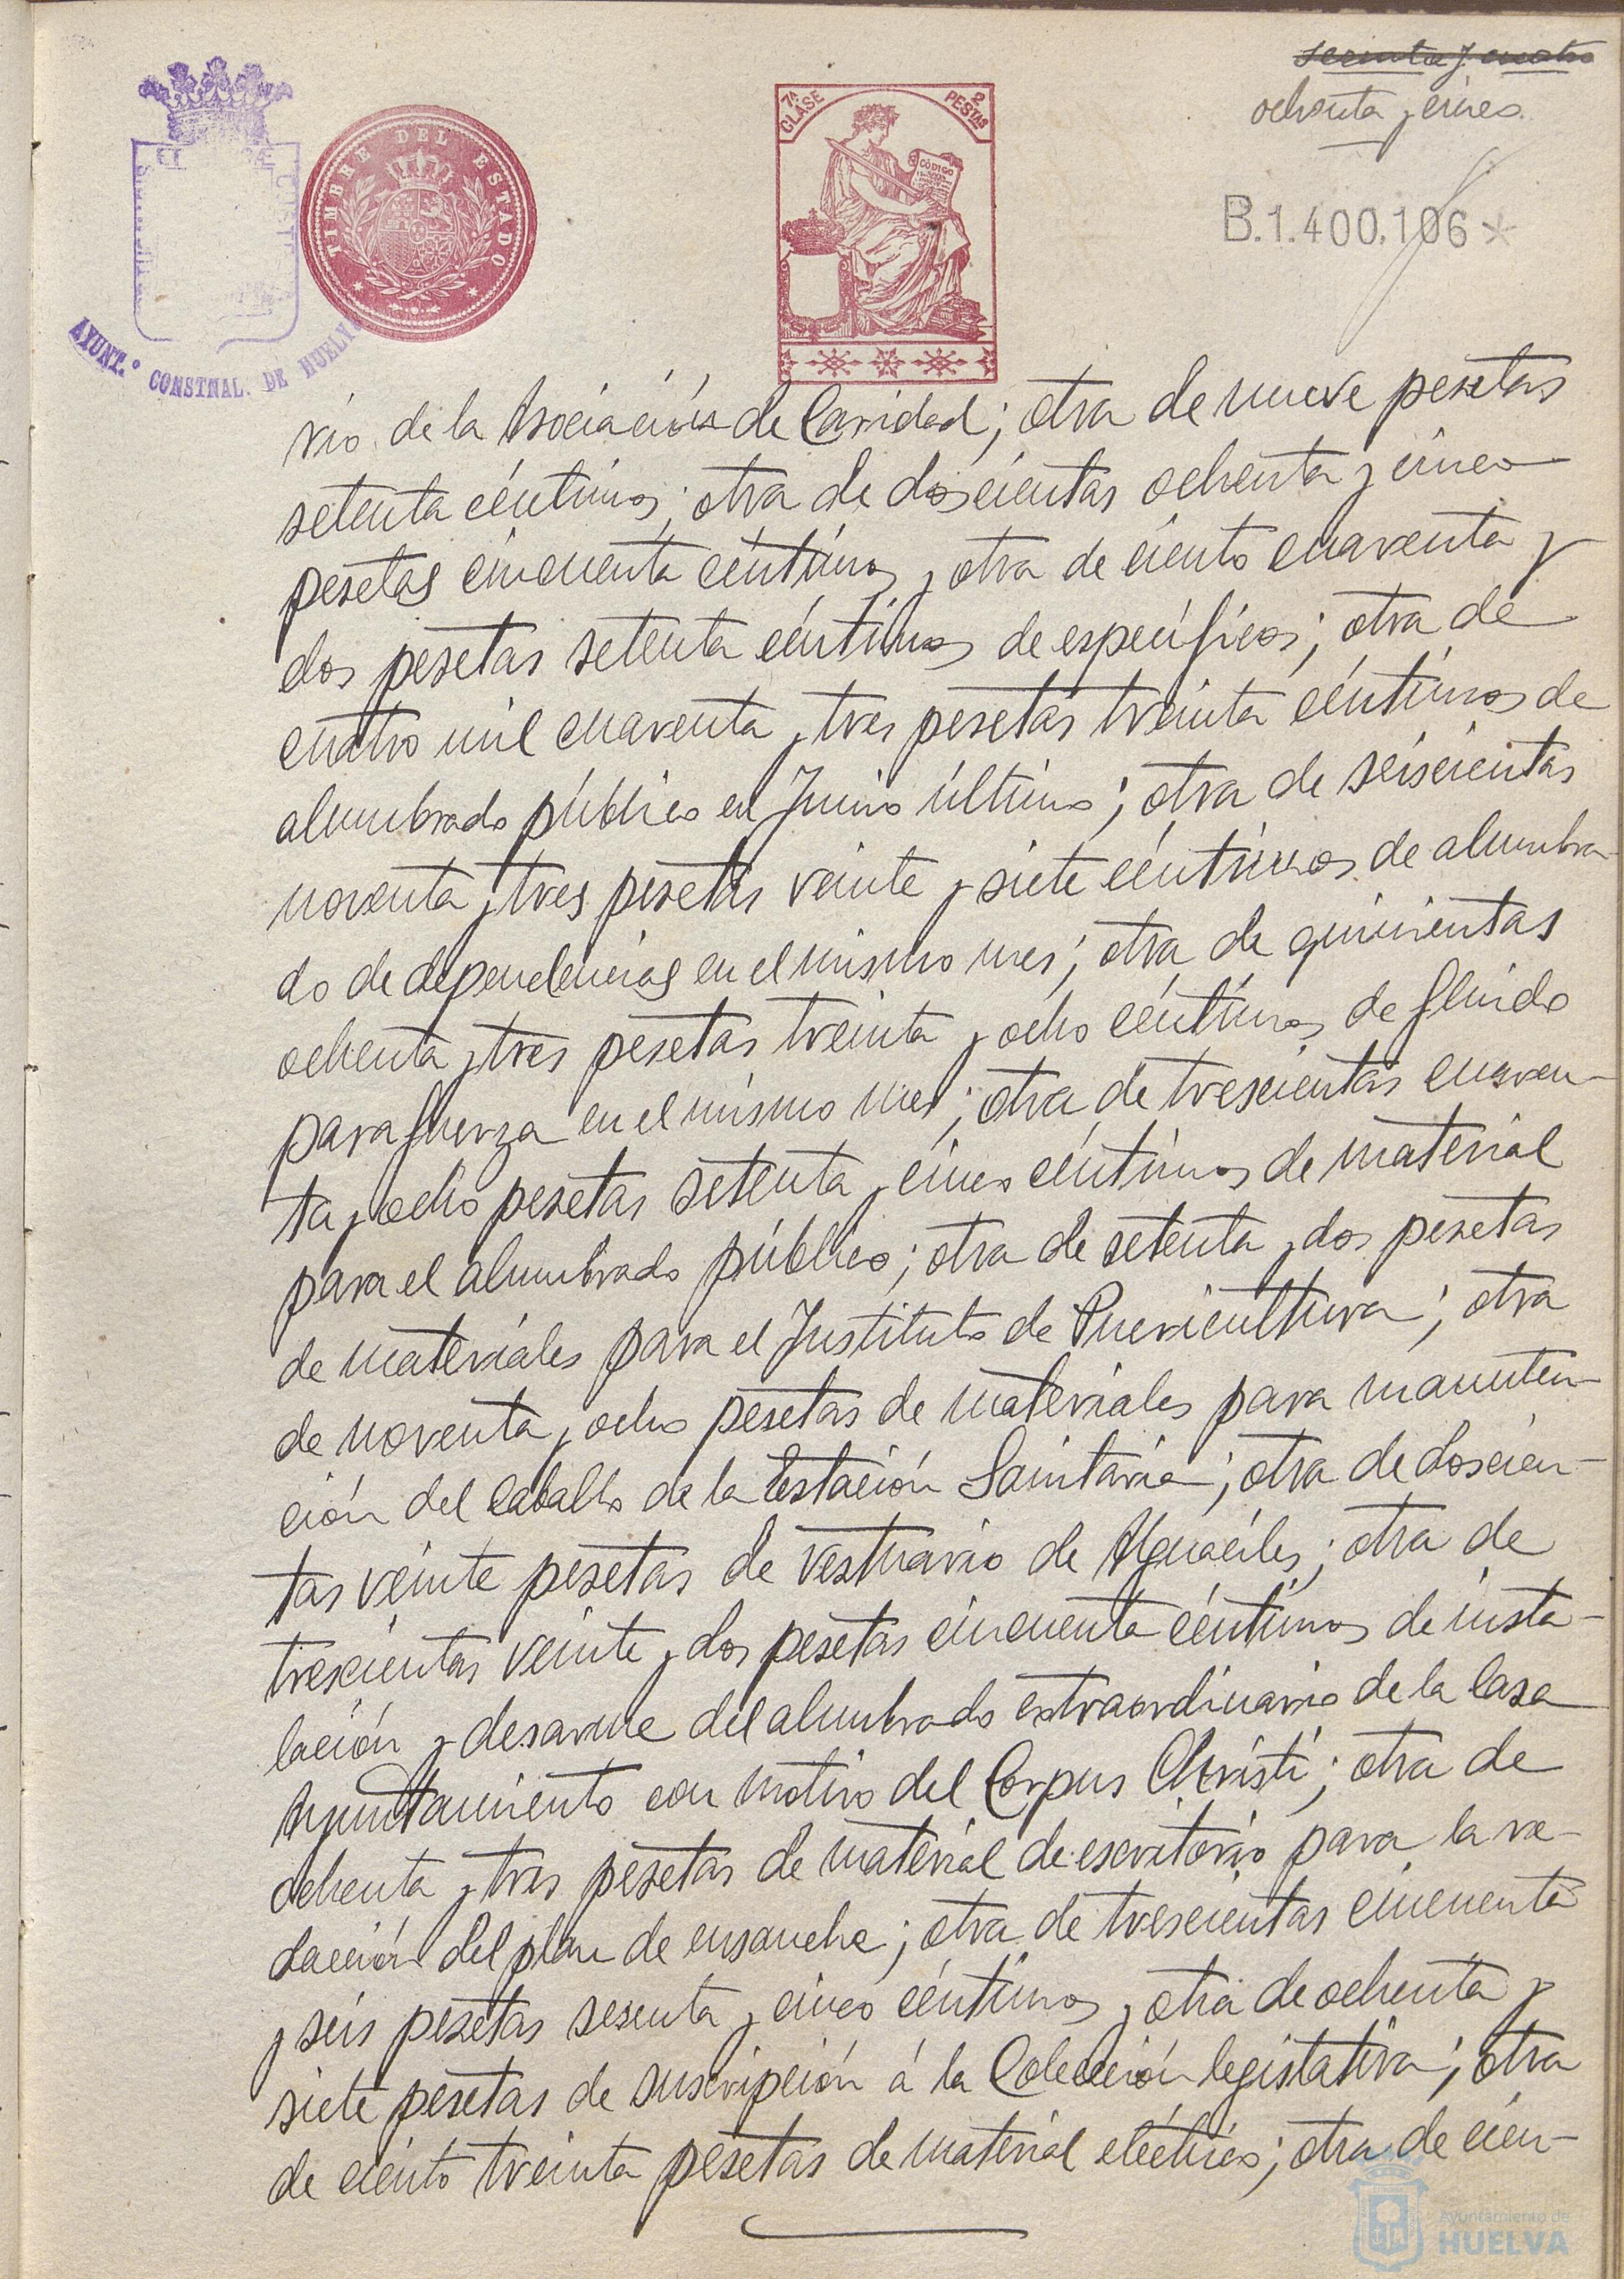 sesenta y cuatro
ochenta y cinco
7ª CLASE
2 PESTAS
CÓDIGO
TIMBRE DEL ESTADO
B.1.400.106*
AYUNT.º CONSTNAL. DE HUELVA
rio de la Asociación de Caridad; otra de nueve pesetas
setenta céntimos; otra de doscientas ochenta y cinco
pesetas cincuenta céntimos y otra de ciento cuarenta y
dos pesetas setenta céntimos de específicos; otra de
cuatro mil cuarenta y tres pesetas treinta céntimos de
alumbrado público en Junio último; otra de seiscientas
noventa y tres pesetas veinte y siete céntimos de alumbra-
do de dependencias en el mismo mes; otra de quinientas
ochenta y tres pesetas treinta y ocho céntimos de fluido
para fuerza en el mismo mes; otra de trescientas cuaren-
ta y ocho pesetas setenta y cinco céntimos de material
para el alumbrado público; otra de setenta y dos pesetas
de materiales para el Instituto de Puericultura; otra
de noventa y ocho pesetas de materiales para manuten-
ción del caballo de la Estación Sanitaria; otra de doscien-
tas veinte pesetas de vestuario de Alguaciles; otra de
trescientas veinte y dos pesetas cincuenta céntimos de insta-
lación y desarme del alumbrado extraordinario de la Casa
Ayuntamiento con motivo del Corpus Christi; otra de
ochenta y tres pesetas de material de escritorio para la re-
dacción del plan de ensanche; otra de trescientas cincuenta
y seis pesetas sesenta y cinco céntimos y otra de ochenta y
siete pesetas de suscripción á la Colección legislativa; otra
de ciento treinta pesetas de material eléctrico; otra de cien-
Ayuntamiento de
HUELVA